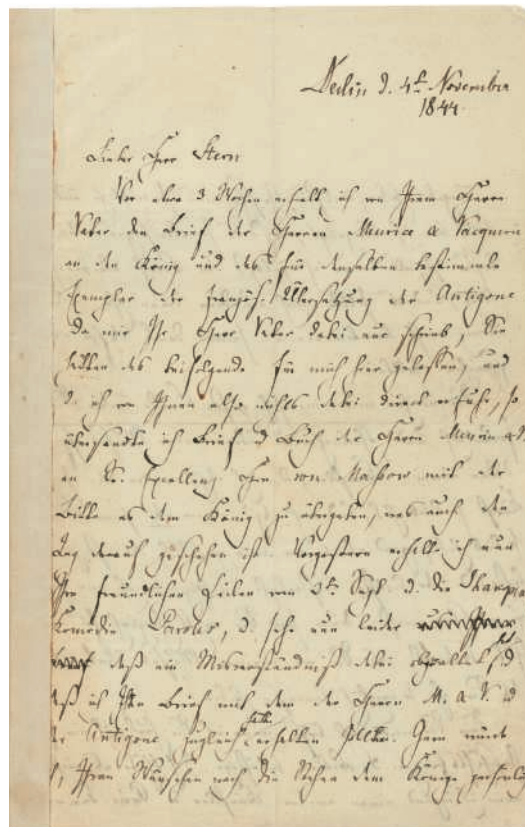 Berlin d. 4t November
1844.
Lieber Herr Stern
Vor etwa 3 Wochen erhielt ich von Ihrem Herrn
Vater den Brief der Herren Meurice & Vacquerie
an den König und das für denselben bestimmte
Exemplar der französ. Übersetzung der Antigone
Da mir Ihr Herr Vater dabei nur schrieb, Sie
hätten das beifolgende für mich hier gelassen, und
d. ich von Ihnen also nichts dabei direct erfuhr, so
übersandte ich Brief u Buch der Herren Meurice & V.
an Sr. Excellenz Hrn von Massow mit der
Bitte es dem König zu übergeben, was auch den
Tag darauf geschehen ist. Vorgestern erhielt ich nun
Ihre freundlichen Zeilen vom Sept d. die
Komödie Paroles, d. sehe nun leider
daß ein Misverständniß dabei obgewaltet hat d
daß ich Ihren Brief mit dem der Herren M. & V. d
der Antigone zugleich hätte erhalten sollen. Gern würde
ich, Ihren Wünschen nach die Sachen dem Könige persönlich